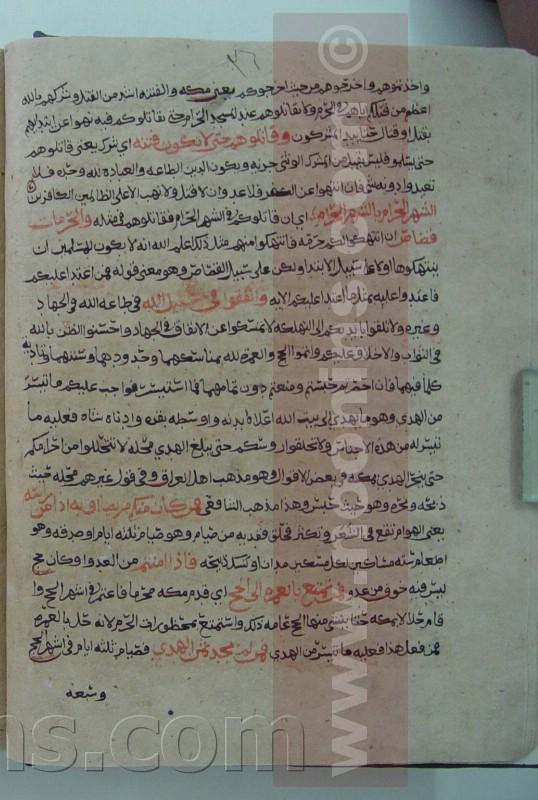 ٢٦
واخذتموهم واخرجوهم من حيث اخرجوكم يعني مكه والفتنه اشد من القتل وشركهم بالله
اعظم من قتلكم اياهم في الحرم ولا تقاتلوهم عند المسجد الحرام حتى يقاتلوكم فيه نهوا عن ابتدايهم
بقتل او قتال حتى يبتدي المشركون وقاتلوهم حتى لا تكون فتنه اي شرك يعني قاتلوهم
حتى يسلموا فليس يقبل من المشرك الوثني جزيه ويكون الدين الطاعه والعباده لله وحده فلا
تعبدوا دونه شي فان انتهوا عن الكفر فلا عدوان لا قتل ولا نهب الا على الظالمين الكافرين
الشهر الحرام بالشهر الحرام اي ان قاتلوكم في الشهر الحرام فقاتلوهم في مثله والحرمات
قصاص ان انتهكوا لكم حرمه فانتهكوا منهم مثل ذلك اعلم الله انه لا يكون للمسلمين ان
ينتهكوها ولا على سبيل الابتدا ولكن على سبيل القصاص وهو معنى قوله فمن اعتدا عليكم
فاعتدوا عليه بمثل ما اعتدا عليكم الايه وانفقوا في سبيل الله في طاعه الله والجهاد
وغيره ولا تلقوا بايديكم الى التهلكه لا تمسكوا عن الانفاق في الجهاد واحسنوا الظن بالله
في الثواب والاخلاف عليكم واتموا الحج والعمره لله بمناسكهما وحدودهما وسننهما وتاديه
كلما فيهما فان احصرتم حبستم ومنعتم دون تمامهما فما استيسر فواجب عليكم ما تيسر
من الهدي وهو ما يهدي الى بيت الله اعلاه بدنه واوسطه بقره وادناه شاه فعليه ما
تيسر له من هذه الاجناس ولا تحلقوا روسكم حتى يبلغ الهدي محله لا تتحللوا من احرامكم
حتى ينحر الهدي بمكه في بعض الاقوال وهو مذهب اهل العراق وفي قول غيرهم محله حيث
ذبحه ونحره وهو حيث حبس وهذا مذهب الشافعي فمن كان منكم مريضا او به اذا من راسه
يعني الهوام تقع في الشعر وتكثر فحلق ففديه من صيام وهو صيام ثلثه ايام او صدقه وهو
اطعام سته مساكين لكل مسكين مدان او نسك ذبيحه فاذا امنتم من العدو او كان حج
ليس فيه خوف من عدو فمن تمتع بالعمره الى الحج اي قدم مكه محرما فاعتمر في اشهر الحج وا
قام حلالا بمكه حتى ينشي منها الحج عامه ذلك واستمتع بمحظورات الحرم لانه حل بالعمره
فمن فعل هذا فعليه ما تيسر من الهدي فمن لم يجد ثمن الهدي فصيام ثلثه ايام في اشهر الحج
وسبعه
© www.mbonirsns.com
ns.com